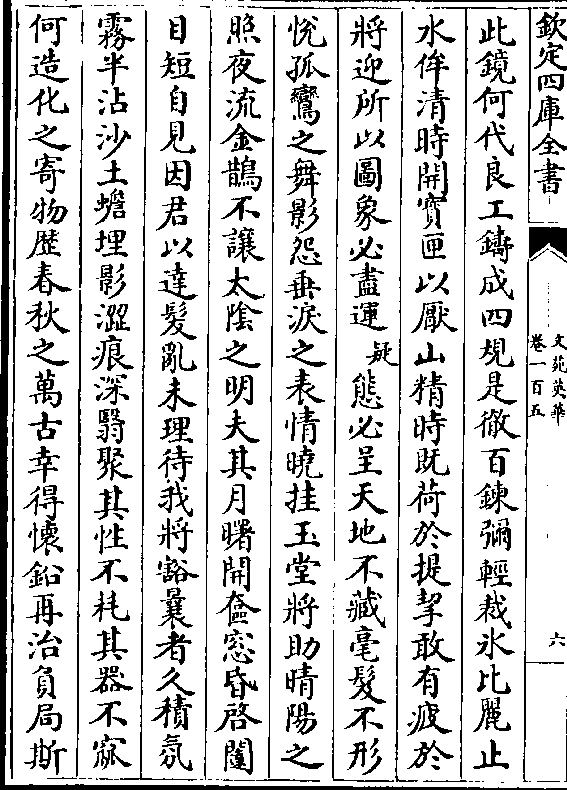 欽定四庫全書
文苑英華
卷一百五
六
此鏡何代良工鑄成四規是徹百鍊彌輕裁氷比麗止
水侔清時開寳匣以厭山精時既荷於提挈敢有疲於
將迎所以圖象必盡運疑態必呈天地不藏毫髮不形
悅孤鸞之舞影怨垂淚之表情曉挂玉堂將助晴陽之
照夜流金鵲不讓太陰之明夫其月曙開奩窓昏啓闥
目短自見因君以達髮亂未理待我將豁曩者久積氛
霧半沾沙土蟾埋影澀痕深翳聚其性不耗其器不寐
何造化之寄物歴春秋之萬古幸得懐鉛再冶負局斯